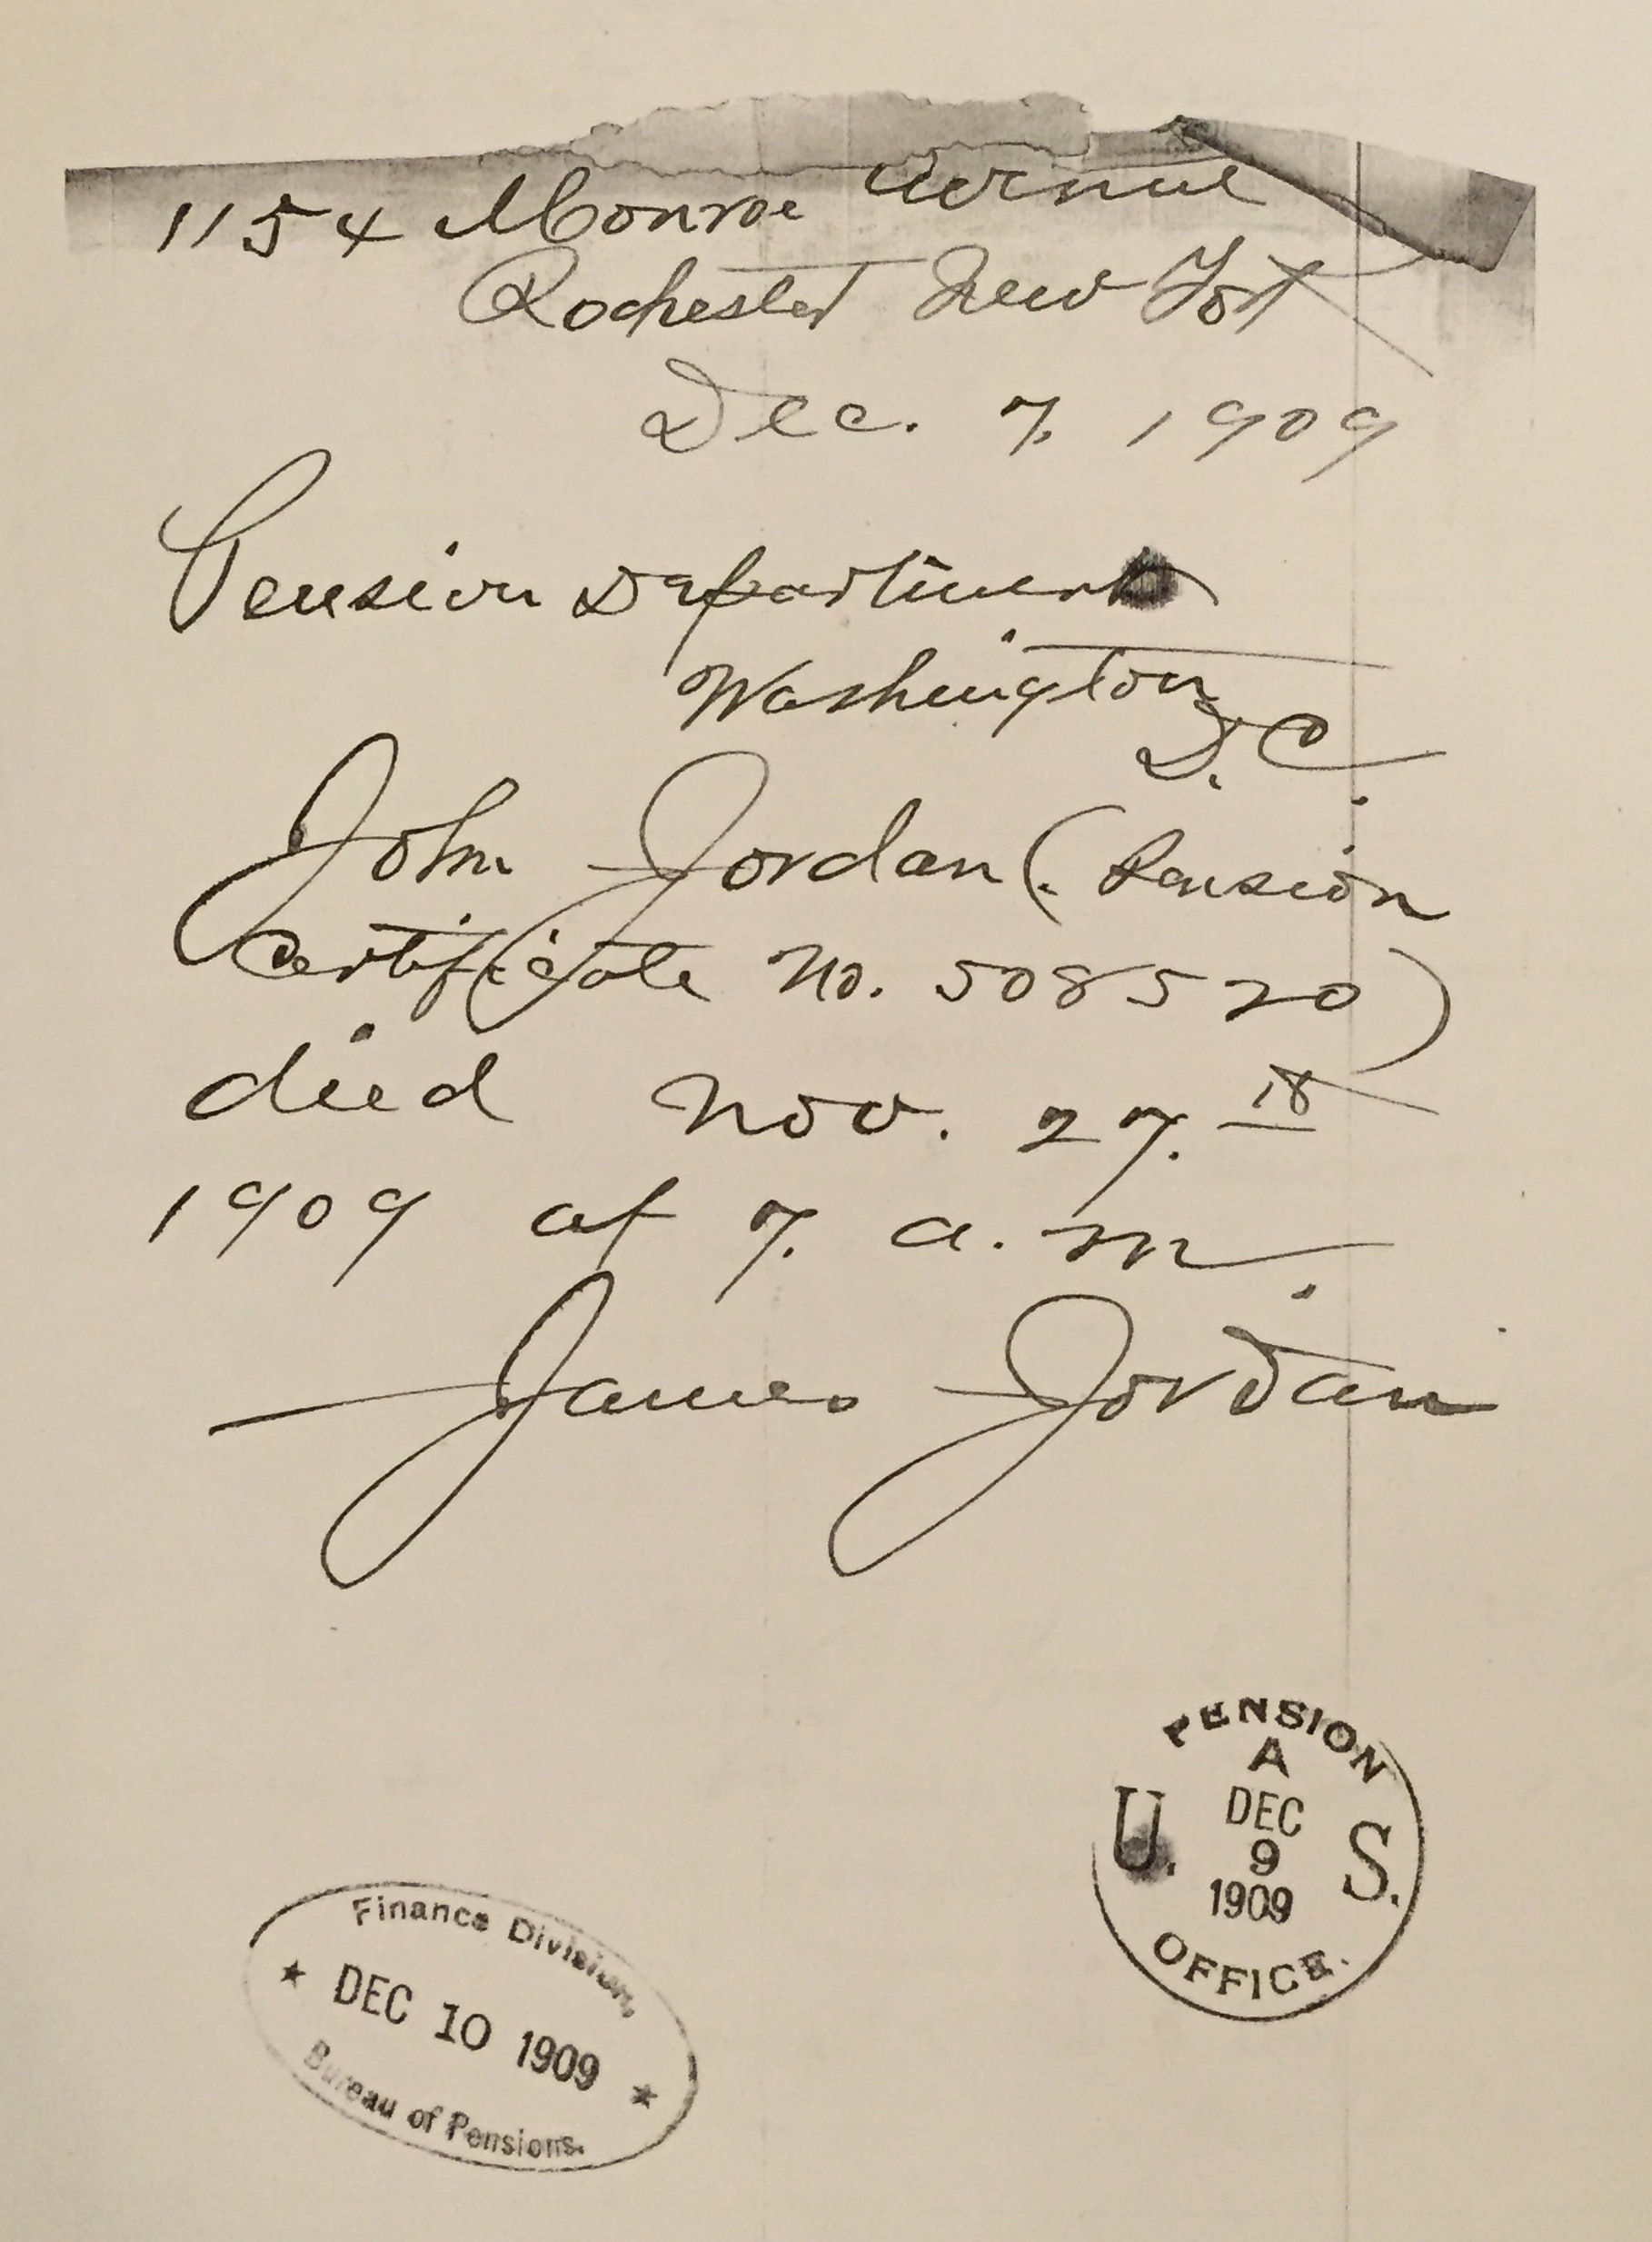 1154 Monroe Avenue
Rochester New York
Dec. 7. 1909
Pension Department
Washington
D.C.
John Jordan (Pension
Certificate No. 508520)
died Nov. 27. th
1909 at 7. a.m.
James Jordan
PENSION
A
DEC
9
1909
U. S.
OFFICE.
Finance Division,
★ DEC 10 1909 ★
Bureau of Pensions.